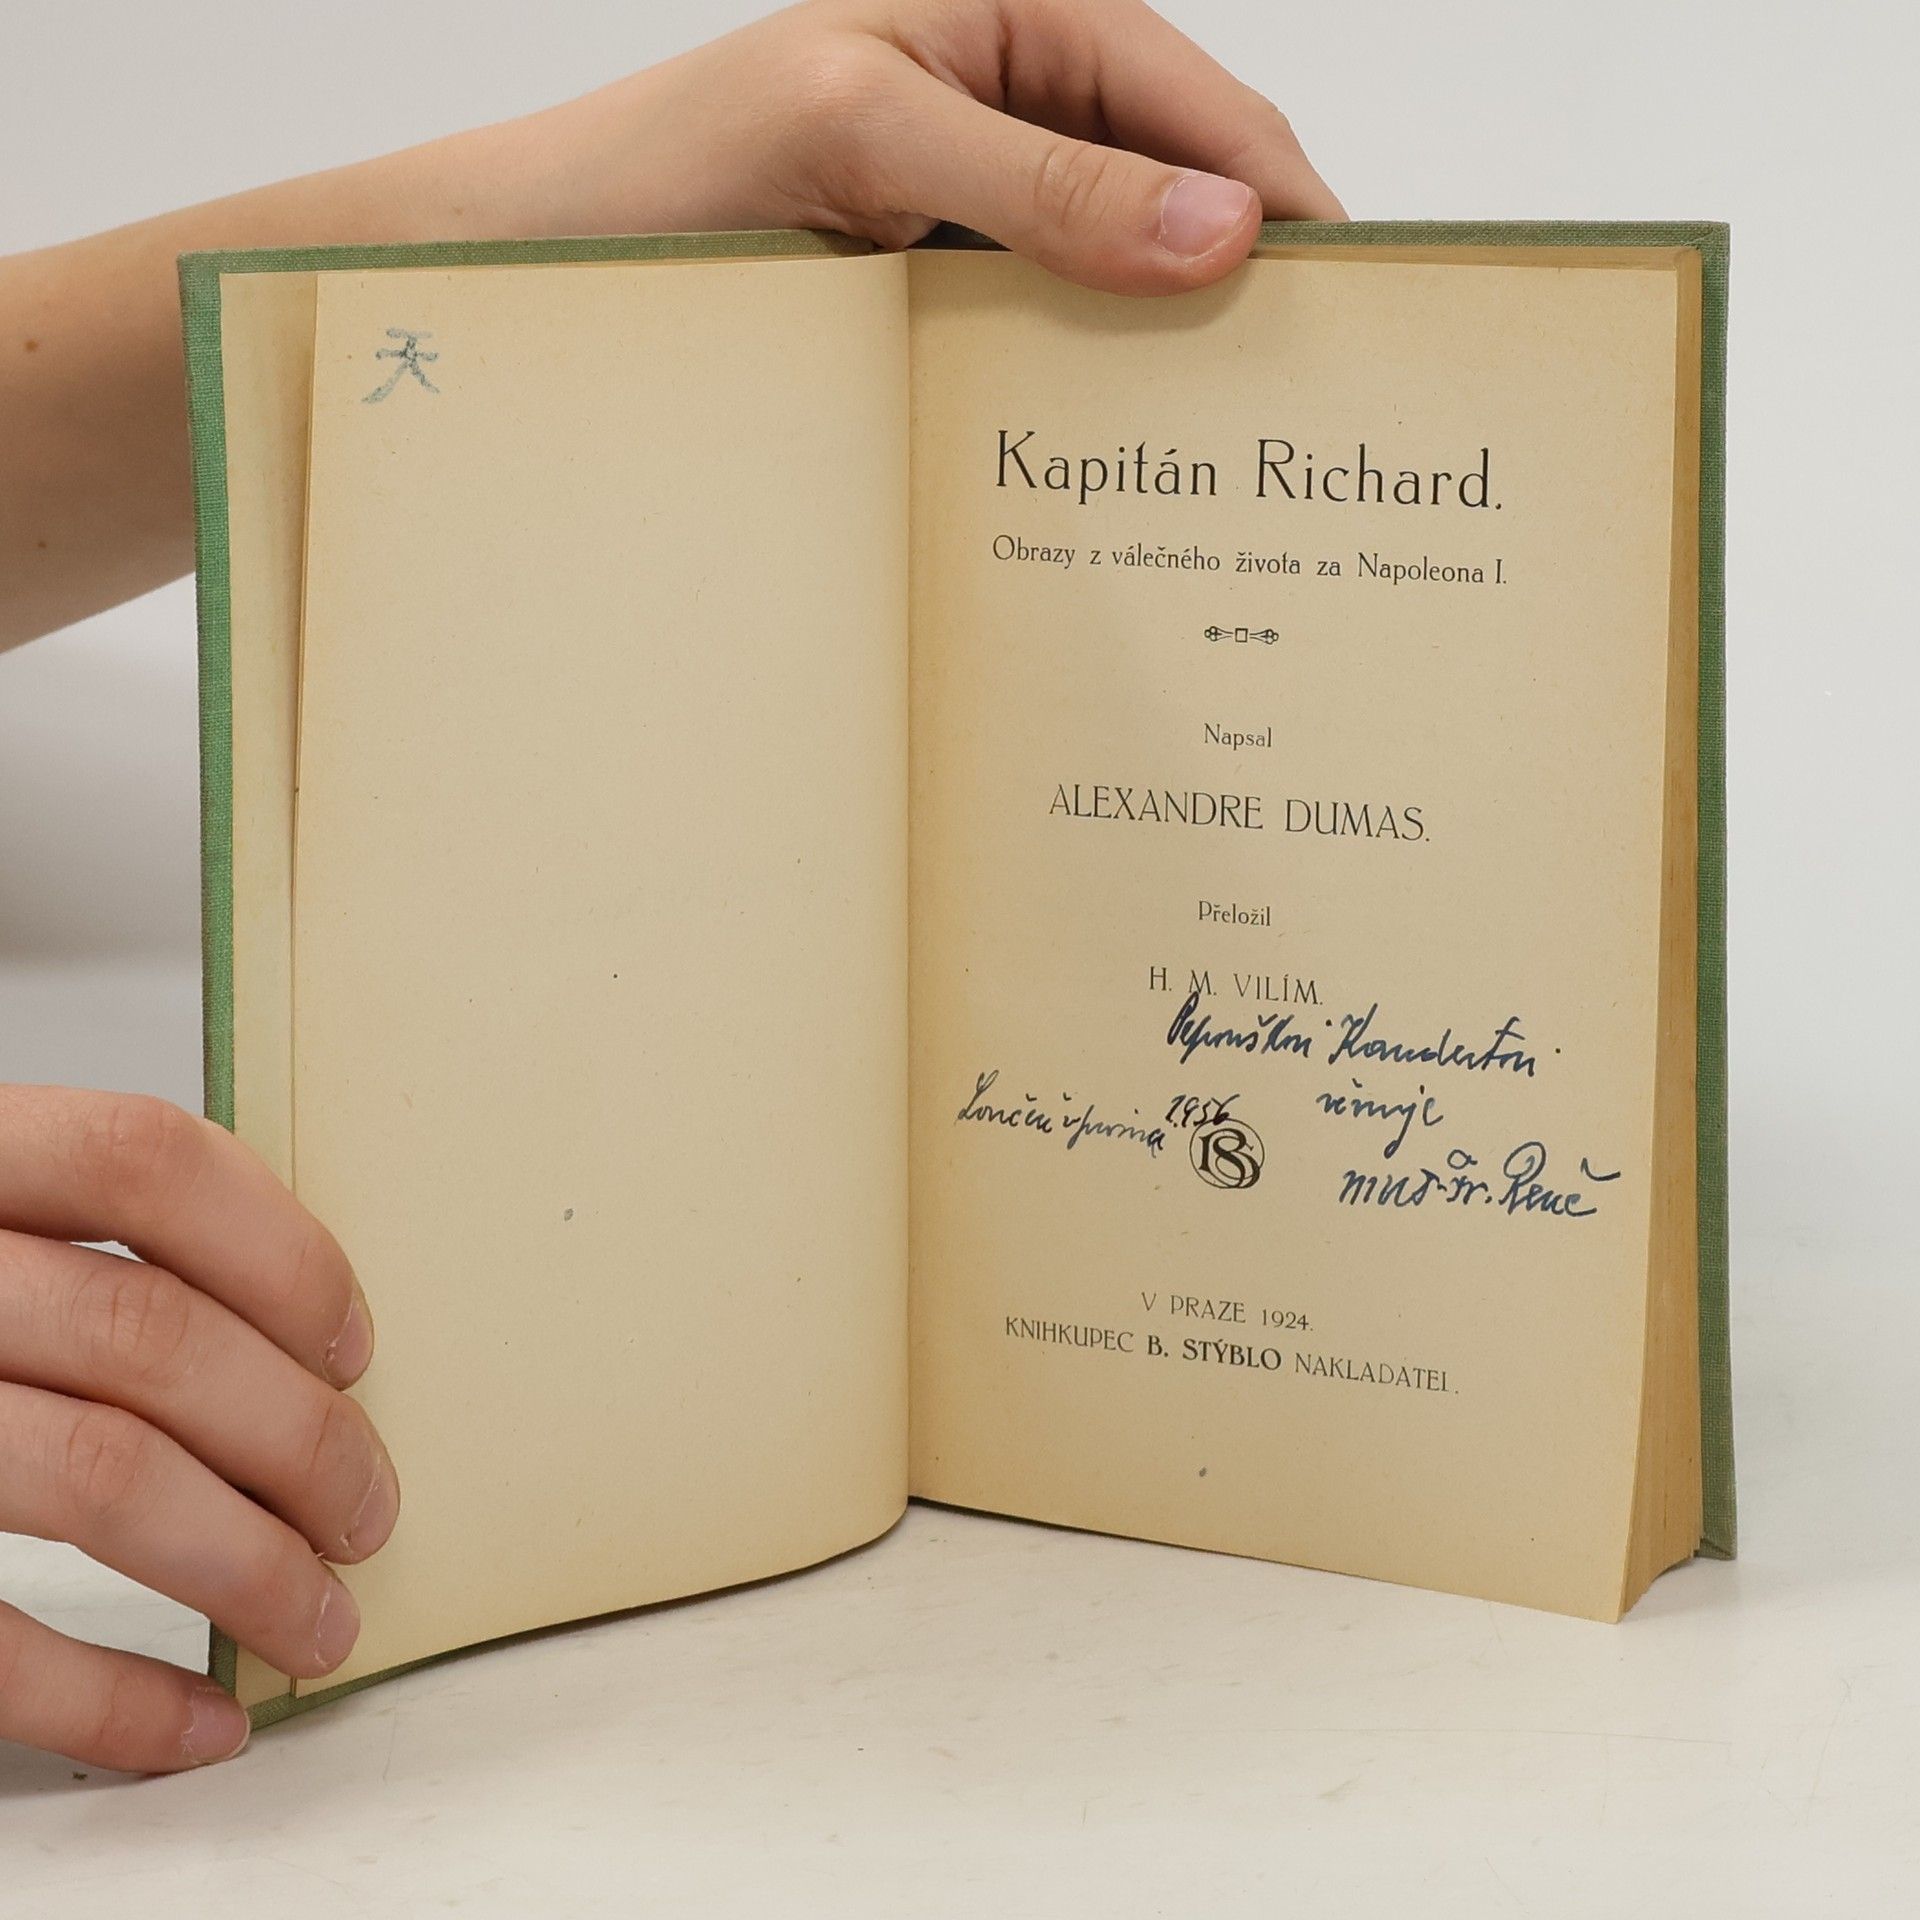 Kapitán Richard.
Obrazy z válečného života za Napoleona I.
Napsal
ALEXANDRE DUMAS.
Přeložil
H. M. VILÍM.
věnuje
1956
Fr. Renč
BS
V PRAZE 1924.
KNIHKUPEC B. STÝBLO NAKLADATEL.